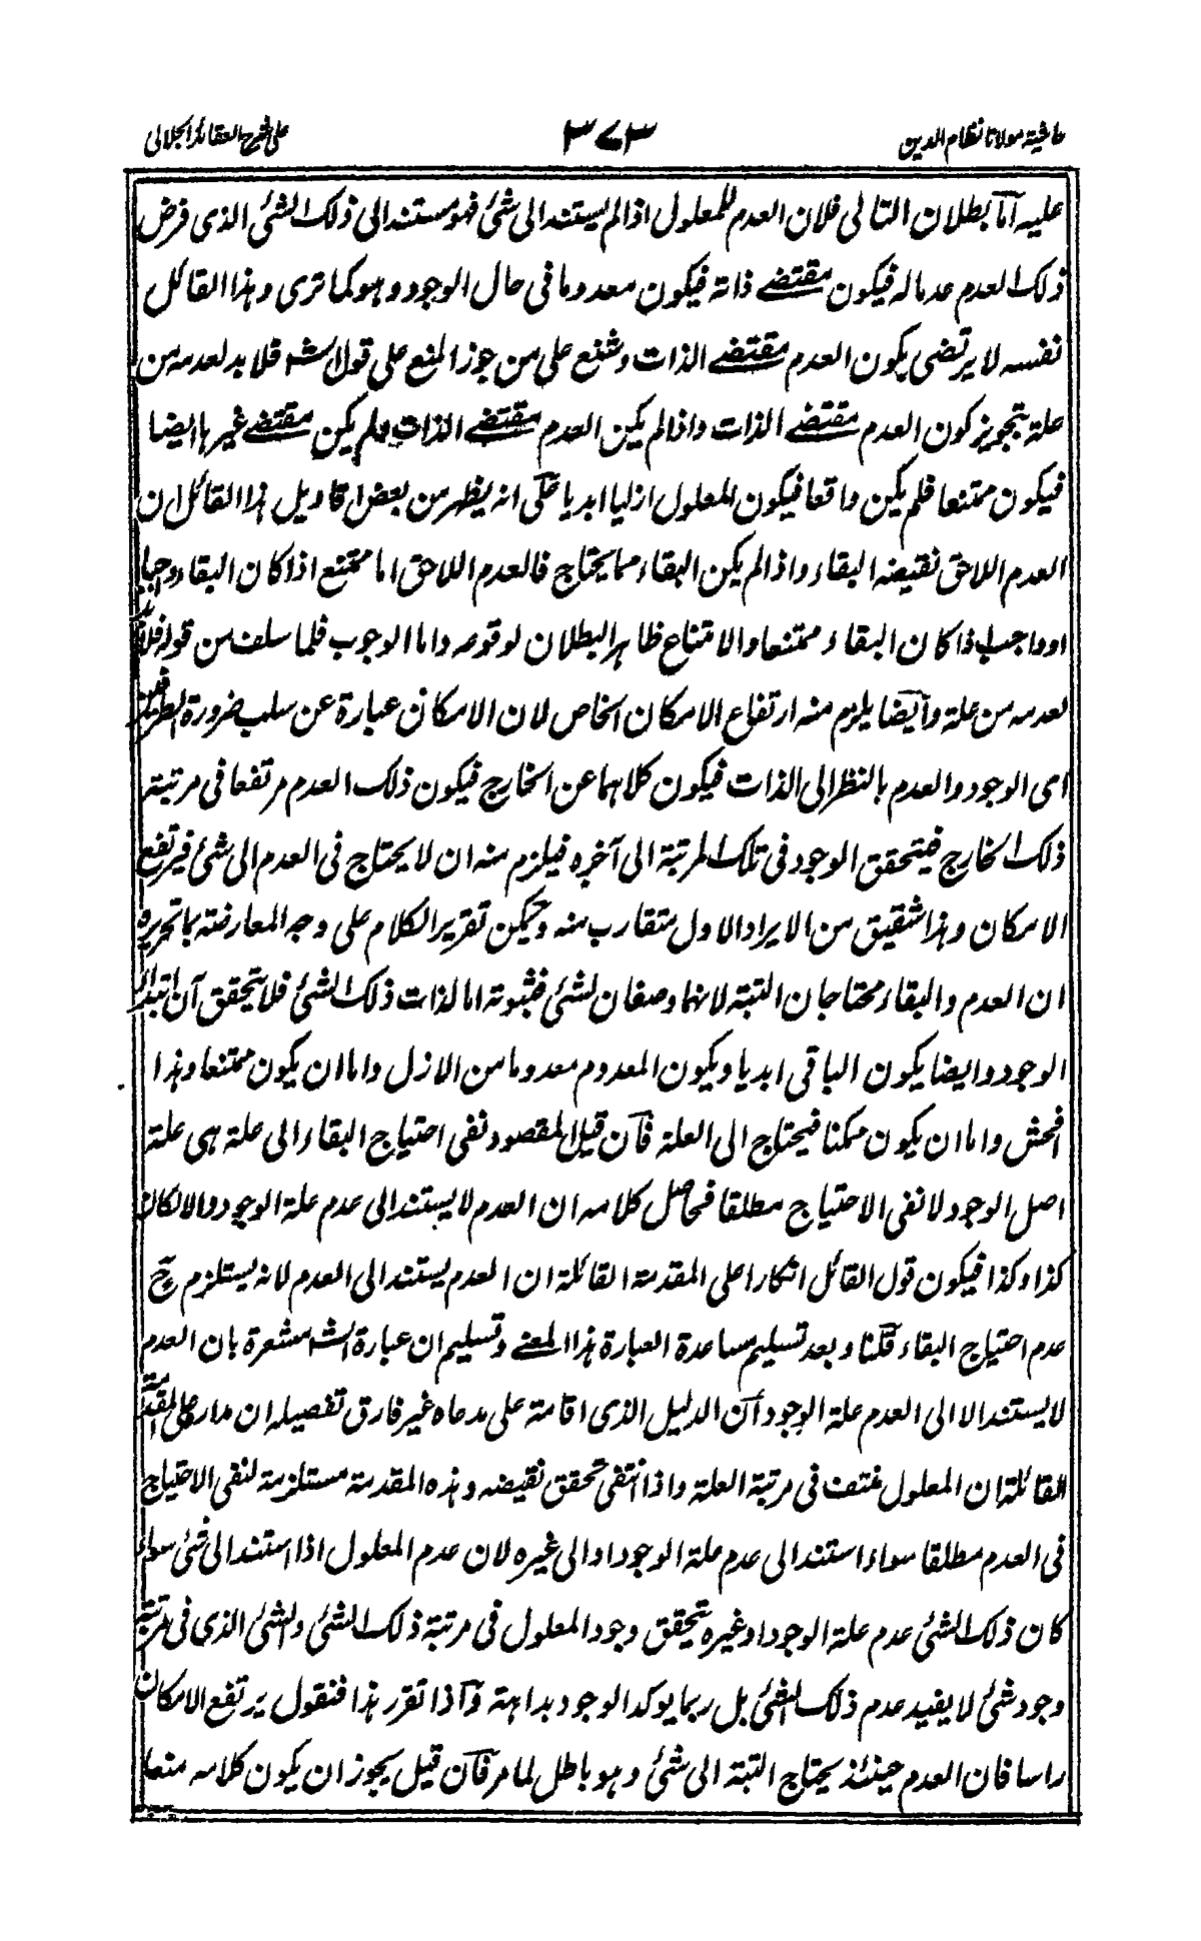 حاشية مولانا نظام الدين ٣٧٣ على شرح العقائد الجلالى
عليه اما بطلان التالى فلان العدم للمعلول اذا لم يستند الى شئ فهو مستند الى ذلك الشئ الذى فرض
ذلك العدم عدما له فيكون مقتضے ذاته فيكون معدوما فى حال الوجود وهو كما ترى وهذا القائل
نفسه لا يرتضى بكون العدم مقتضے الذات وشنع على من جوز المنع على قول الشه فلا بد لعدمه من
علة بتجويز كون العدم مقتضے الذات واذا لم يكن العدم مقتضے الذات ولم يكن مقتضے غيرها ايضا
فيكون ممتنعا فلم يكن واقعا فيكون المعلول ازليا ابديا على انه يظهر من بعض اقاويل هذا القائل ان
العدم اللاحق نقيضه البقاء واذا لم يكن البقاء مما يحتاج فالعدم اللاحق اما ممتنع اذا كان البقاء واجبا
او واجب اذا كان البقاء ممتنعا والامتناع ظاهر البطلان لوقوعه واما الوجوب فلما سلف من قوله فلا بد
لعدمه من علة وايضا يلزم منه ارتفاع الامكان الخاص لان الامكان عبارة عن سلب ضرورة الطرفين
اى الوجود والعدم بالنظر الى الذات فيكون كلاهما عن الخارج فيكون ذلك العدم مرتفعا فى مرتبة
ذلك الخارج فيتحقق الوجود فى تلك المرتبة الى آخره فيلزم منه ان لا يحتاج فى العدم الى شئ فيرتفع
الامكان وهذا شقيق من الايراد الاول متقارب منه ويمكن تقرير الكلام على وجه المعارضة بما تحريره
ان العدم والبقاء محتاجان التبة لانهما وصفان لشئ فثبوته اما لذات ذلك الشئ فلا يتحقق آن ابتداء
الوجود وايضا يكون الباقى ابديا ويكون المعدوم معدوما من الازل واما ان يكون ممتنعا وهذا
افحش واما ان يكون ممكنا فيحتاج الى العلة فان قيل المقصود نفى احتياج البقاء الى علة هى علة
اصل الوجود لا نفى الاحتياج مطلقا فحاصل كلامه ان العدم لا يستند الى عدم علة الوجود والا لكان
كذا وكذا فيكون قول القائل انكارا على المقدمة القائلة ان العدم يستند الى العدم لانه يستلزم ح
عدم احتياج البقاء قلنا وبعد تسليم مساعدة العبارة هذا المعنے وتسليم ان عبارة الشه مشعرة بان العدم
لا يستند الا الى العدم علة الوجود ان الدليل الذى اقامة على مدعاه غير فارق تفصيله ان مداره على المقدمة
القائلة ان المعلول منتف فى مرتبة العلة واذا انتفى تحقق نقيضه وهذه المقدمة مستلزمة لنفى الاحتياج
فى العدم مطلقا سواء استند الى عدم علة الوجود او الى غيره لان عدم المعلول اذا استند الى شئ سواء
كان ذلك الشئ عدم علة الوجود او غيره يتحقق وجود المعلول فى مرتبة ذلك الشئ والشئ الذى فى مرتبة
وجود شئ لا يفيد عدم ذلك الشئ بل ربما يوكد الوجود بداهة واذا تقرر هذا فنقول يرتفع الامكان
راسا فان العدم حينئذ يحتاج التبة الى شئ وهو باطل لما مر فان قيل يجوز ان يكون كلامه منعا